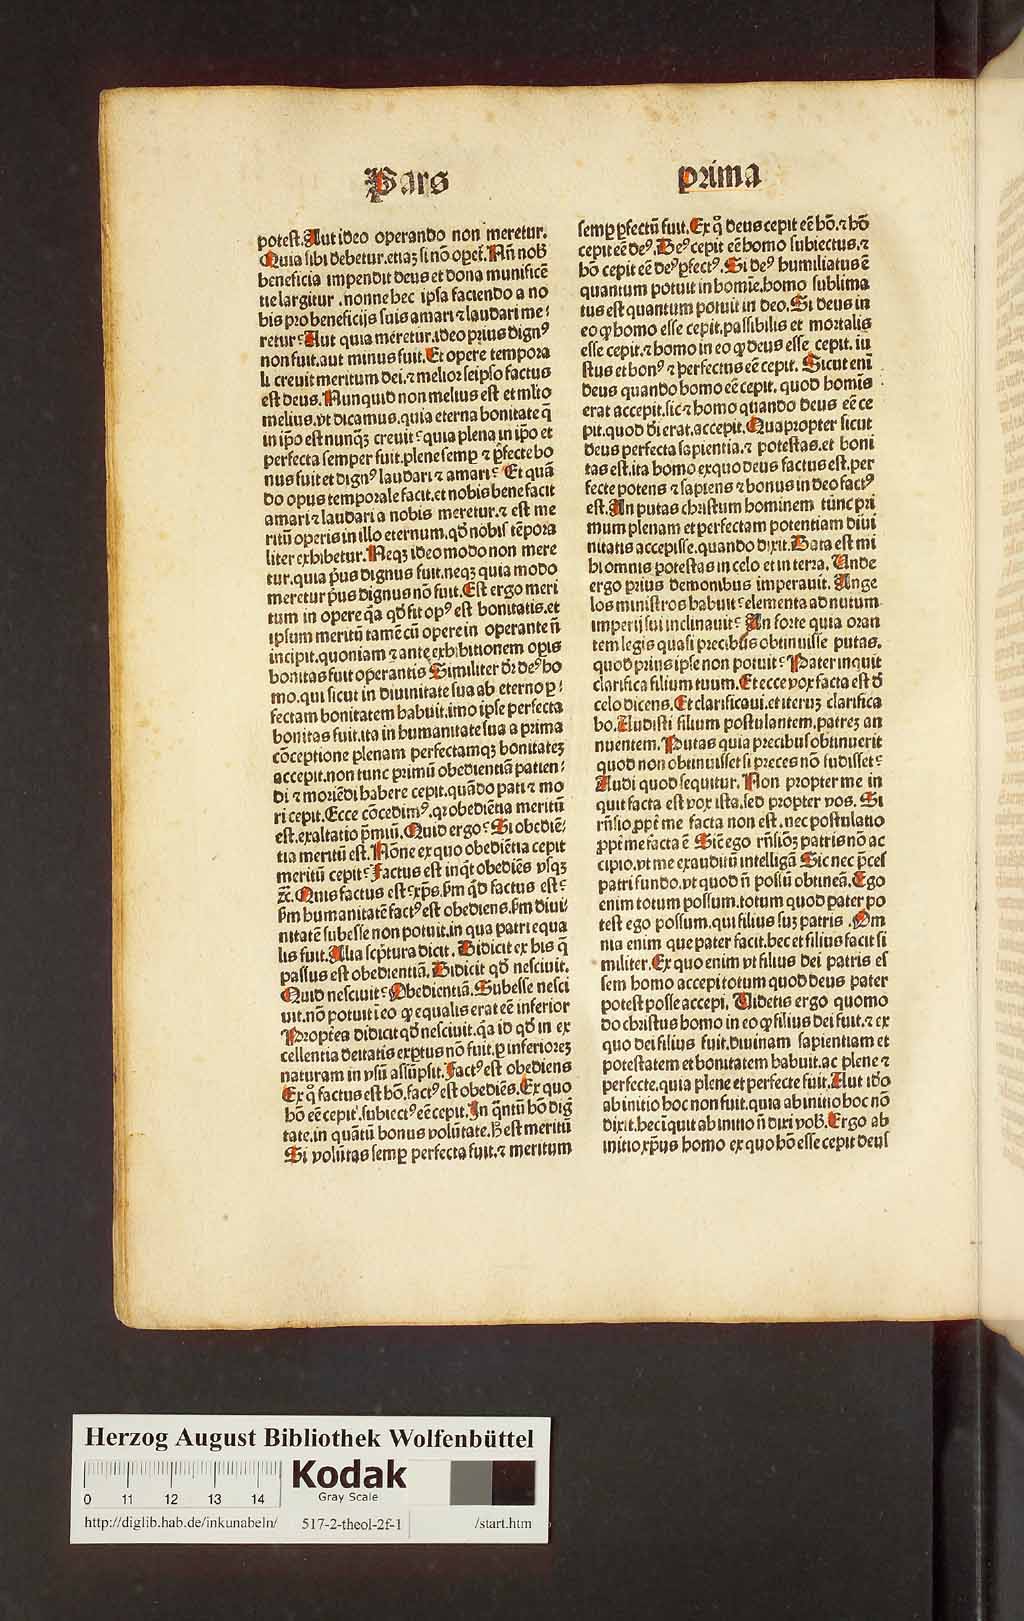 Pars
prima
potest. Aut ideo operando non meretur.
Quia sibi debetur. etiaʒ si nō oꝑet̄. Nn̄ nob̄
beneficia impendit deus et dona munificē
tie largitur . nonne hec ipsa faciendo a no
bis pro beneficijs suis amari ⁊ laudari me⸗
retur? Aut quia meretur. ideo prius dignꝰ
non fuit. aut minus fuit. Et opere tempora
li creuit meritum dei. ⁊ melior seipso factus
est deus. Nunquid non melius est et ml̄to
melius. vt dicamus. quia eterna bonitate q̄
in ip̄o est nunqʒ creuit? quia plena in ip̄o et
perfecta semper fuit. plene semꝑ ⁊ ꝑfecte bo
nus fuit et dignꝰ laudari ⁊ amari? Et quā
do opus temporale facit. et nobis bene facit
amari ⁊ laudari a nobis meretur. ⁊ est me
ritū operis in illo eternum. qd̄ nobis tēpora
liter exhibetur. Neqʒ ideo modo non mere
tur. quia p̄us dignus fuit. neqʒ quia modo
meretur p̄us dignus nō fuit. Est ergo meri
tum in opere q̄a qd̄ fit opꝰ est bonitatis. et
ipsum meritū tamē cū opere in operante n̄
incipit. quoniam ⁊ ante exhibitionem opis
bonitas fuit operantis Similiter dr̄ deꝰ ho
mo. qui sicut in diuinitate sua ab eterno ꝑ⸗
fectam bonitatem habuit. imo ipse perfecta
bonitas fuit. ita in humanitate sua a prima
cōceptione plenam perfectamqʒ bonitateʒ
accepit. non tunc primū obedientiā patien⸗
di ⁊ moriēdi habere cepit. quādo pati ⁊ mo
ri cepit. Ecce cōcedimꝰ. qꝛ obediētia meritū
est. exaltatio p̄miū. Quid ergo? Si obediē⸗
tia meritū est. Nōne ex quo obediētia cepit
meritū cepit? Factus est inqt̄ obediēs vsqʒ
⁊c̄. Quis factus est? xp̄s. ẜm qd̄ factus est?
ẜm humanitatē factꝰ est obediens. ẜm diui⸗
nitatē subesse non potuit. in qua patri equa
lis fuit. Alia scp̄tura dicit. Didicit ex his q̄
passus est obedientiā. Didicit qd̄ nesciuit.
Quid nesciuit? Obedientiā. Subesse nesci
uit. nō potuit i eo ꝙ equalis erat eē inferior
Propterea didicit qd̄ nesciuit. q̄a id qd̄ in ex
cellentia deitatis exptus nō fuit. ꝑ inferioreʒ
naturam in vsū assūpsit. Factꝰ est obediens
Ex qͦ factus est hō. factꝰ est obediēs. Ex quo
hō eē cepit. subiectꝰ eē cepit. In q̄ntū hō diḡ
tate. in quātū bonus volūtate. Ꝧ est meritū
Si volūtas semꝑ perfecta fuit. ⁊ meritum
semꝑ ꝑfectū fuit. Ex qͦ deus cepit eē hō. ⁊ hō
cepit eē deꝰ. Deꝰ cepit eē homo subiectus. ⁊
hō cepit eē deꝰ ꝑfectꝰ. Si deꝰ humiliatus ē
quantum potuit in homīe. homo sublima
tus est quantum potuit in deo. Si deus in
eo ꝙ homo esse cepit. passibilis et mortalis
esse cepit. ⁊ homo in eo ꝙ deus esse cepit. iu
stus et bonꝰ ⁊ perfectus eē cepit. Sicut eni
deus quando homo eē cepit. quod homīs
erat accepit. sic ⁊ homo quando deus eē ce
pit. quod dei erat. accepit. Quapropter sicut
deus perfecta sapientia. ⁊ potestas. et boni
tas est. ita homo ex quo deus factus est. per
fecte potens ⁊ sapiens ⁊ bonus in deo factꝰ
est. An putas christum hominem tūnc pri
mum plenam et perfectam potentiam diui
nitatis accepisse. quando dixit. Data est mi
hi omnis potestas in celo et in terra. Unde
ergo prius demonibus imperauit. Ange
los ministros habuit? elementa ad nutum
imperij sui inclinauit? An forte quia oran
tem legis quasi precibus obtinuisse putas.
quod prius ipse non potuit? Pater inquit
clarifica filium tuum. Et ecce vox facta est d̄
celo dicens. Et clarificaui. et iteruʒ clarifica
bo. Audisti filium postulantem. patreʒ an
nuentem. Putas quia precibus obtinuerit
quod non obtinuisset si preces nō fudisset?
Audi quod sequitur. Non propter me in
quit facta est vox ista. sed propter vos. Si
rn̄sio ꝓpt̄ me facta non est. nec postulatio
ꝓpt̄ me facta ē Sicēgo rn̄siōʒ patris nō ac
cipio. vt me exauditū intelligā Sic nec p̄ces
patri fundo. vt quod n̄ possū obtineā. Ego
enim totum possum. totum quod pater po
test ego possum. qui filius suʒ patris . Om
nia enim que pater facit. hec et filius facit si
militer. Ex quo enim vt filius dei patris es
sem homo accepi totum quod deus pater
potest posse accepi. Uidetis ergo quomo
do christus homo in eo ꝙ filius dei fuit. ⁊ ex
quo dei filius fuit. diuinam sapientiam et
potestatem et bonitatem habuit. ac plene ⁊
perfecte. quia plene et perfecte fuit. Aut ido
ab initio hoc non fuit. quia ab initio hoc nō
dixit. hec īquit ab initio n̄ dixi vob̄. Ergo ab
initio xp̄us homo ex quo hō esse cepit deus
Herzog August Bibliothek Wolfenbüttel
Kodak
Gray Scale
0 11 12 13 14
http://diglib.hab.de/inkunabeln/ 517-2-theol-2f-1 /start.htm